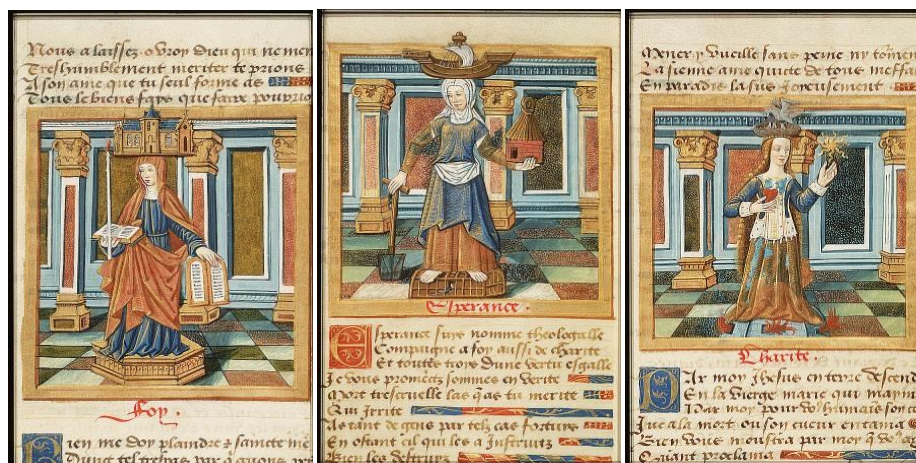 Nous a laissez o vroy dieu qui ne men
Treshumblement meritee te prions
A son ame que tu seul forme as
Tous le biens faire que faire pouvrio
Foy.
ien me doy plaindre & saincte me
Dung tel
Esperance.
Esperance suys nommee theologalle
Compaigne a foy aussi de charite
Et toutes trois dune vertu esgalle
Je vous prometz sommes en verite
Mort trescruelle las q as tu merite
Qui Irrite
As tant de gens par telz cas fortune
En ostant cil qui les a Instruitz
Bien les destruitz
Mener y vueille sans peine ny tormen
La sienne ame quicte de tous meffa
En paradis la sus Joyeusement
Charite.
Par moy Jhesus en terre descend
En la vierge marie qui
Par moy pour vo humais son
Jucques a la mort ou son cueur entama
Bien vous monstra par moy q vo
Quant proclama